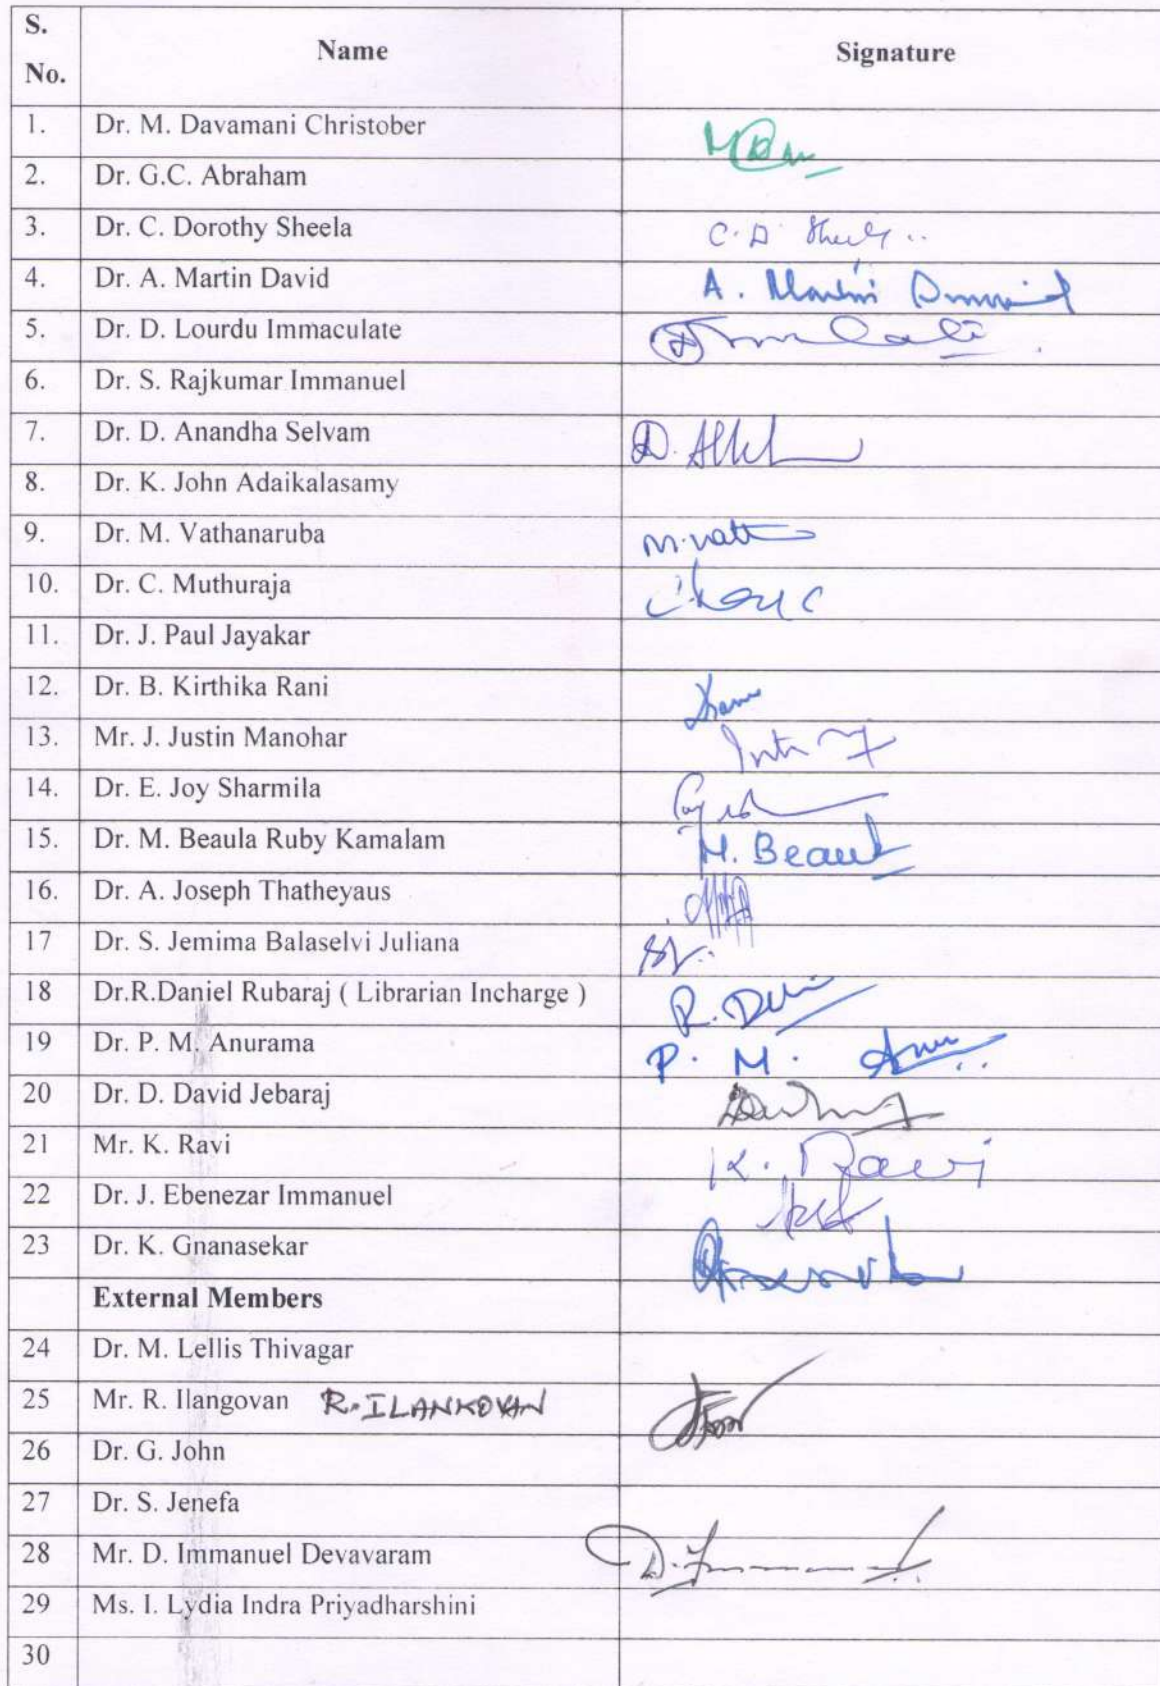 S. No. Name Signature
1. Dr. M. Davamani Christober
2. Dr. G.C. Abraham
3. Dr. C. Dorothy Sheela C. D
4. Dr. A. Martin David A. Martin
5. Dr. D. Lourdu Immaculate
6. Dr. S. Rajkumar Immanuel
7. Dr. D. Anandha Selvam D.
8. Dr. K. John Adaikalasamy
9. Dr. M. Vathanaruba
10. Dr. C. Muthuraja
11. Dr. J. Paul Jayakar
12. Dr. B. Kirthika Rani
13. Mr. J. Justin Manohar
14. Dr. E. Joy Sharmila
15. Dr. M. Beaula Ruby Kamalam M.
16. Dr. A. Joseph Thatheyaus
17 Dr. S. Jemima Balaselvi Juliana
18 Dr.R.Daniel Rubaraj ( Librarian Incharge ) R.
19 Dr. P. M. Anurama P. M.
20 Dr. D. David Jebaraj
21 Mr. K. Ravi K. Ravi
22 Dr. J. Ebenezar Immanuel
23 Dr. K. Gnanasekar
External Members
24 Dr. M. Lellis Thivagar
25 Mr. R. Ilangovan R. ILANKOVAN
26 Dr. G. John
27 Dr. S. Jenefa
28 Mr. D. Immanuel Devavaram D.
29 Ms. I. Lydia Indra Priyadharshini
30